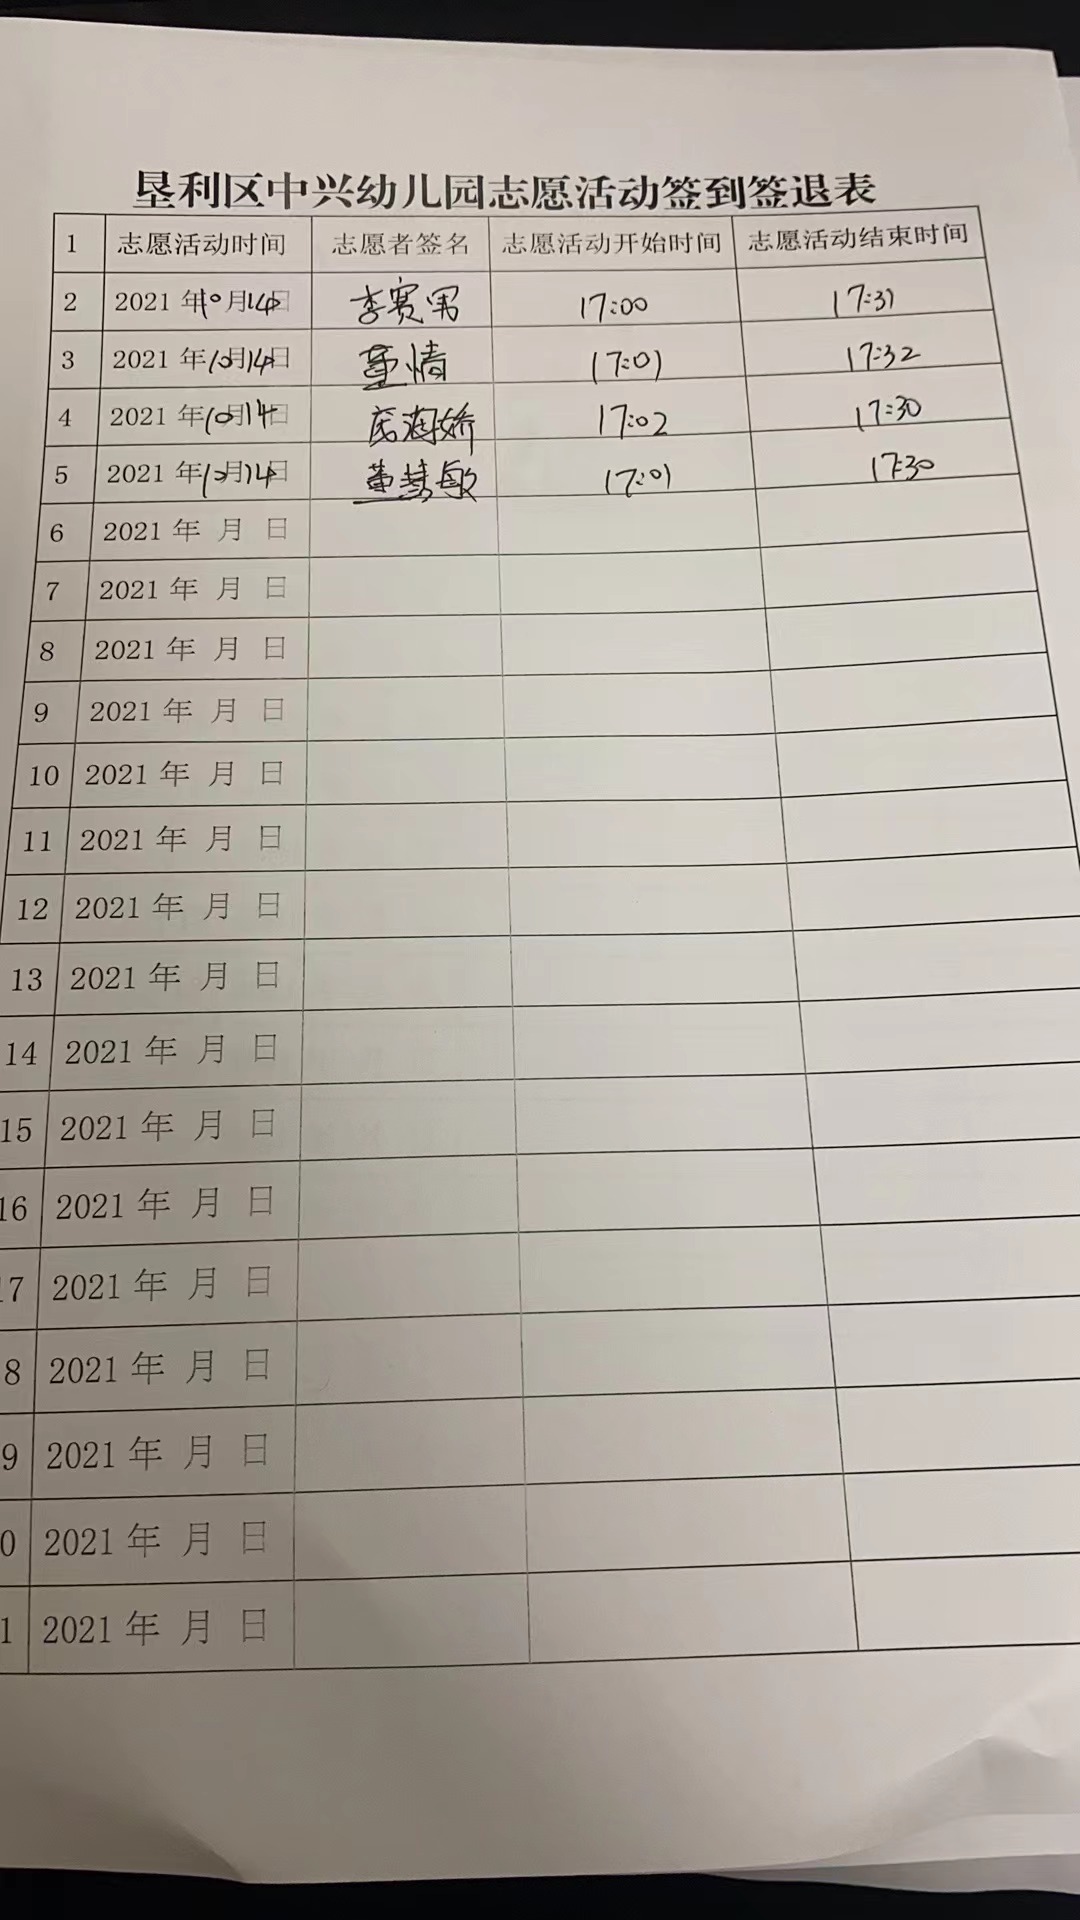 垦利区中兴幼儿园志愿活动签到签退表
1 志愿活动时间 志愿者签名 志愿活动开始时间 志愿活动结束时间
2 2021年10月14日 李赛男 17:00 17:31
3 2021年10月14日 董情 17:01 17:32
4 2021年10月14日 娇 17:02 17:30
5 2021年10月14日 董慧敏 17:01 17:30
6 2021年 月 日
7 2021年 月 日
8 2021年 月 日
9 2021年 月 日
10 2021年 月 日
11 2021年 月 日
12 2021年 月 日
13 2021年 月 日
14 2021年 月 日
15 2021年 月 日
16 2021年 月 日
17 2021年 月 日
8 2021年 月 日
9 2021年 月 日
0 2021年 月 日
1 2021年 月 日